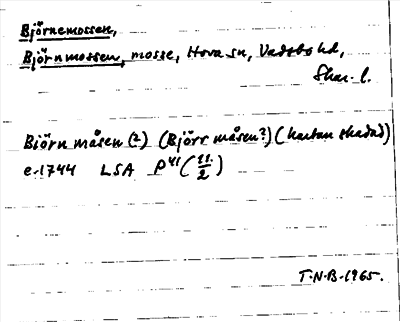 Björnemossen,
Björnmossen, mosse, Hova sn, Vadsbo hd,
Skar. l.
Biörn måsen (?) (Björr måsen?) (kartan skadad)
e. 1744 LSA P41 (11/2)
T.N.B. 1965.